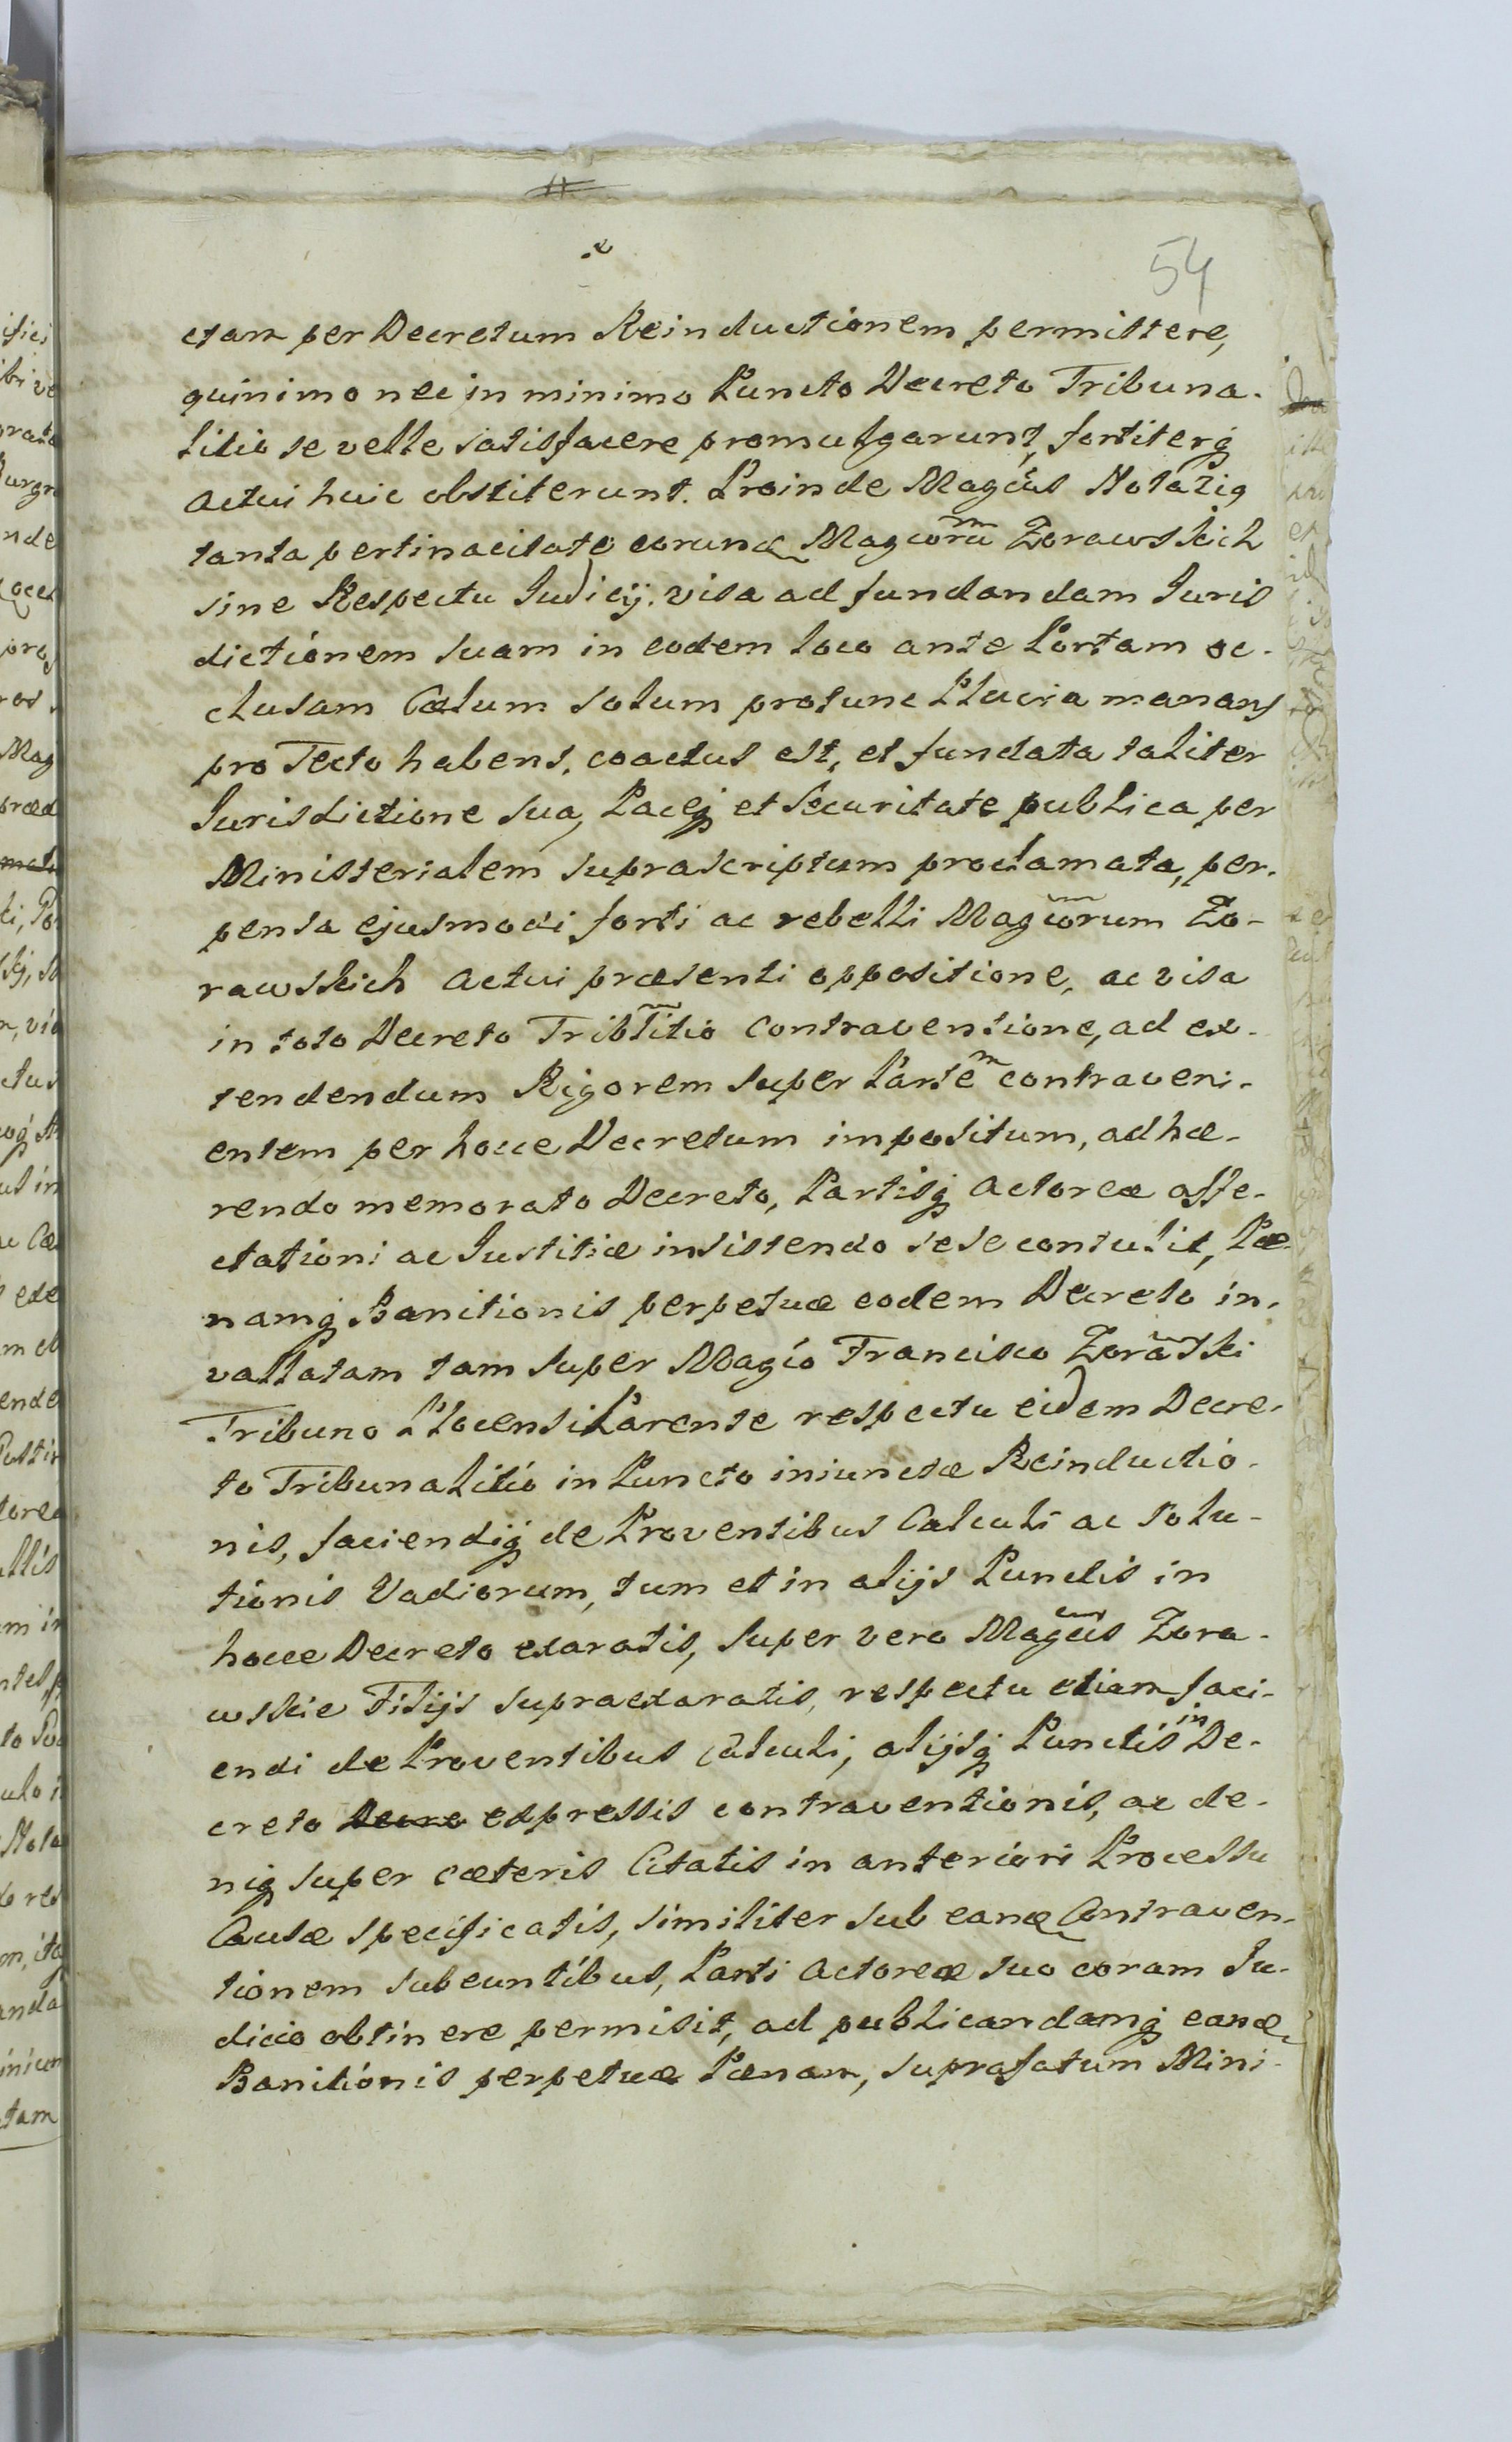 54
ctam per Decretum Reinductionem permittere,
quinimo nec in minimo Puncto Decreto Tribuna-
litio se velle satisfacere promulgarunt, fortiterq
actui huic obstiterunt. Proinde Magcus Notariq
tanta pertinacitate eorund Magcorum Zorawskich
sine Respectu Judicij visa ad fundandam Juris
dictionem suam in eodem loco ante Portam oc-
clusam Cælum solum protunc Pluvia manans
pro Tecto habens, coactus est, et fundata taliter
Jurisdictione sua, Paceq et Securitate publica per
Ministerialem suprascriptum proclamata, per-
pensa ejusmodi forti ac rebelli Magcorum Zo-
rawskich actui præsenti oppositione, ac visa
in toto Decreto Tribltitio contraventione, ad ex-
tendendum Rigorem super Partem contraveni-
entem per hocce Decretum impositum, adhæ-
rendo memorato Decreto, Partisq Actoreæ affe-
ctationi ac Justitiæ insistendo sese contulit, Pæ-
namq Banitionis perpetuæ eodem Decreto in-
vallatam tam super Magco Francisco Zorawski
Tribuno Plocensi Parente respectu eidem Decre-
to Tribunalitio in Puncto iniunctæ Reinductio-
nis, faciendiq de Proventibus Calculi ac Solu-
tionis Vadiorum, tum et in alijs Punctis in
hocce Decreto exaratis, super vero Magcis Zora-
wskie Filijs supraexaratis, respectu etiam faci-
endi de Proventibus Calculi, alijsq Punctis in De-
creto Decre expressis contraventionis, ac de-
niq super cæteris Citatis in anteriori Processu
Causæ specificatis, similiter sub eand Contraven-
tionem subeuntibus, Parti Actoreæ suo coram Ju-
dicio obtinere permisit, ad publicandamq eand
Banitionis perpetuæ Pænam, suprafatum Mini-